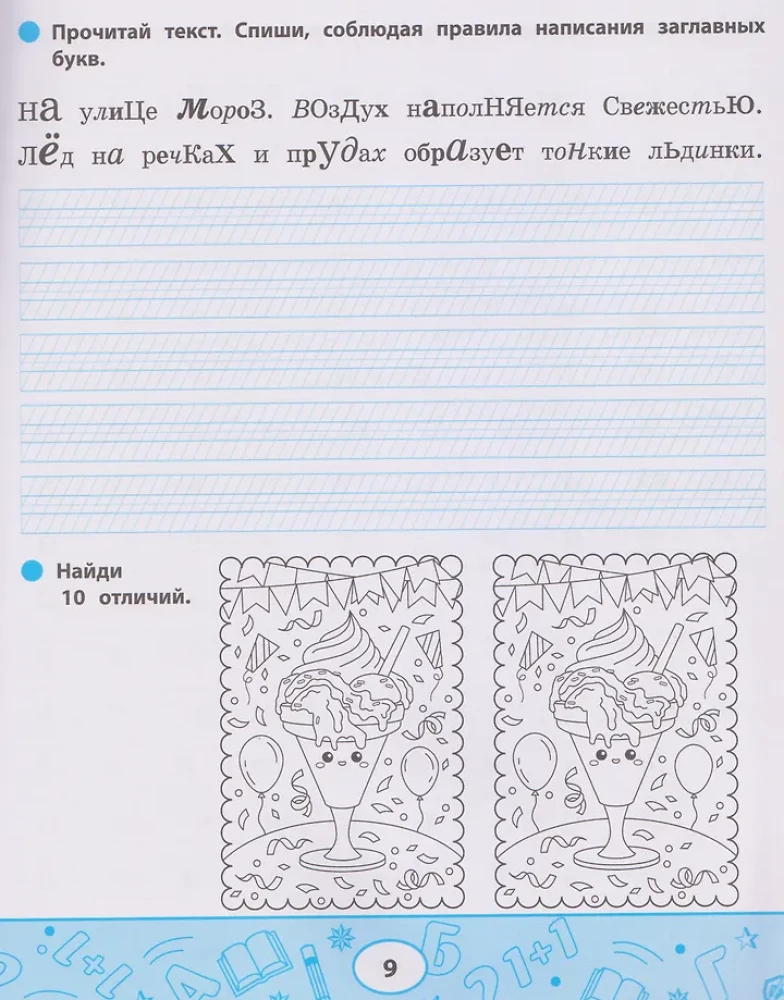 Прочитай текст. Спиши, соблюдая правила написания заглавных
букв.
На улиЦе МороЗ. ВОзДух наполНЯется СвежестьЮ.
Лёд на речКаХ и прудах образует тоНкие лЬдинки.
Найди
10 отличий.
1+1=
А
Б
21+1
Г
9